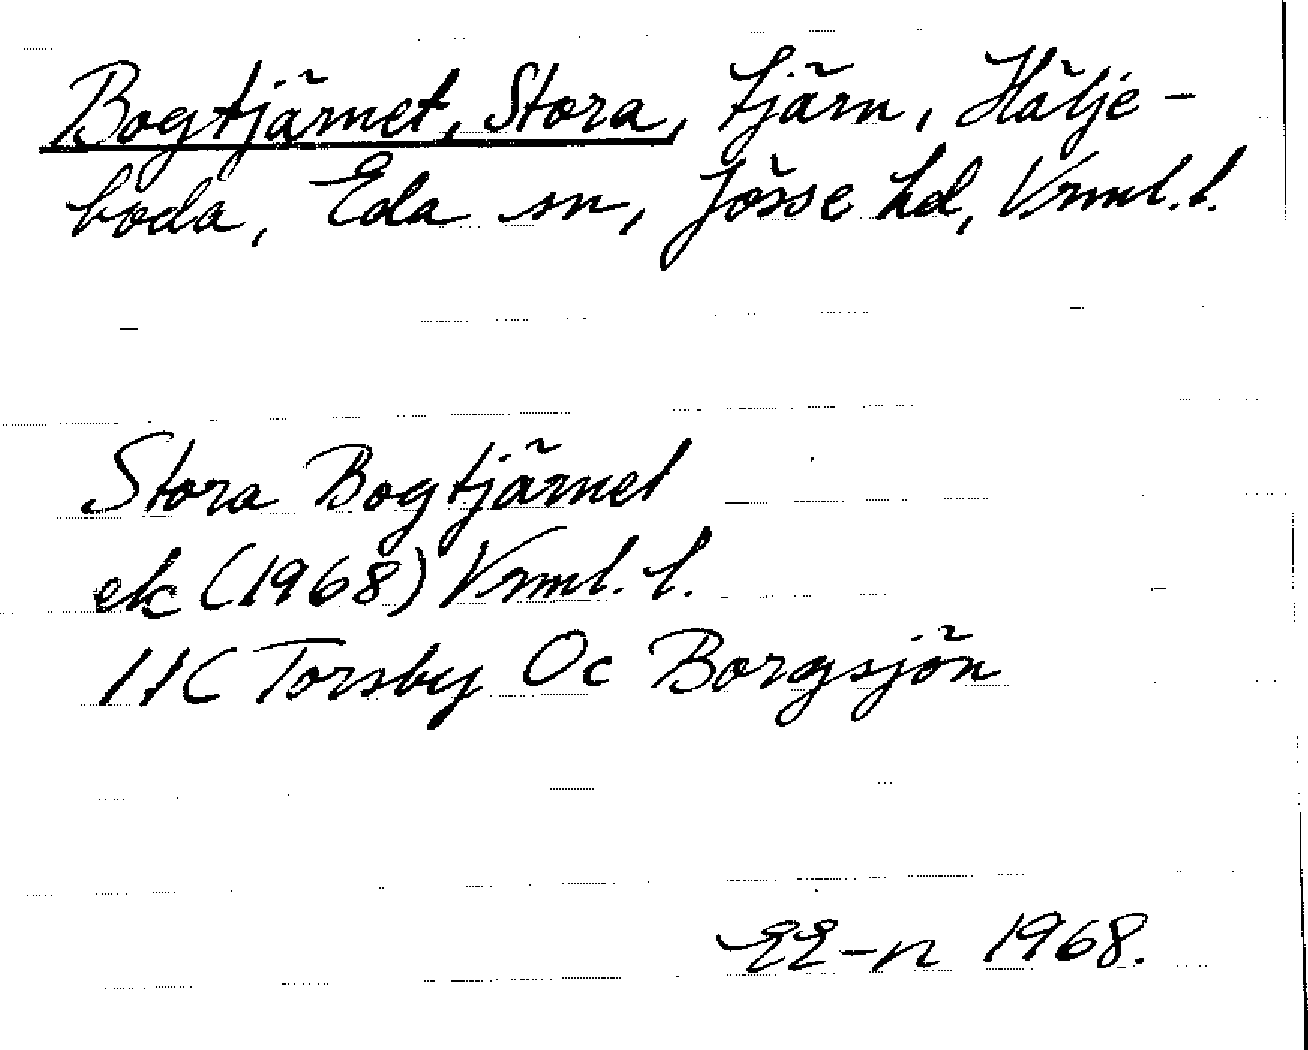 Bogtjärnet, Stora, tjärn, Hälje-
boda, Eda sn, Jösse hd, Vrml. l.
Stora Bogtjärnet
ek (1968) Vrml. l.
11C Torsby Oc Borgsjön
EE-n 1968.